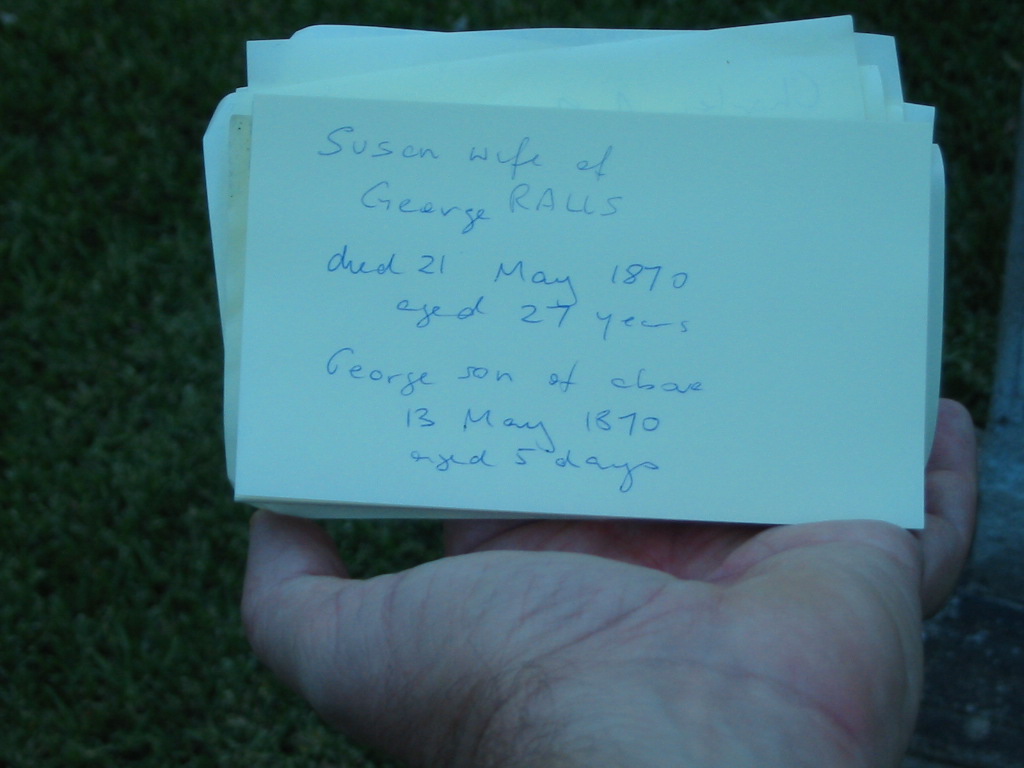 Susan wife of
George RALLS
died 21 May 1870
aged 27 years
George son of above
13 May 1870
aged 5 days